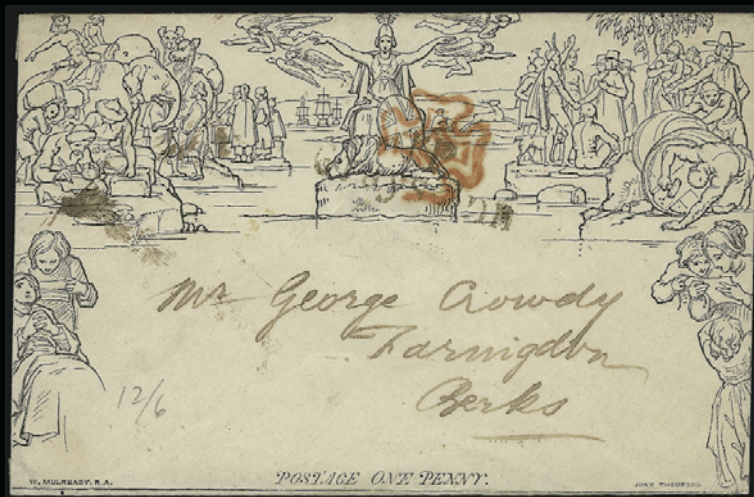 Mr George Crowdy
Farringdon
Berks
12/6
W. MULREADY. R.A.
POSTAGE ONE PENNY.
JOHN THOMPSON